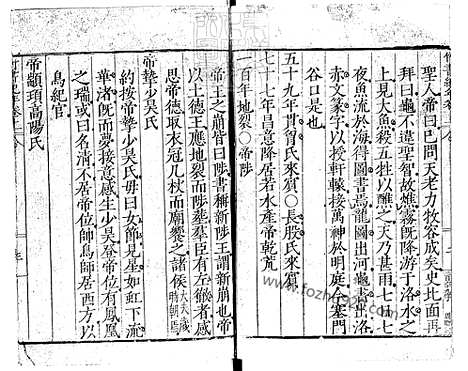 聖人帝曰已問天老力牧容成矣史北面再
拜曰龜不違聖智故燋霧旣降游于洛水之
上見大魚殺五牲以醮之天乃甚雨七日七
夜魚流於海得圖書焉龍圖出河龜書出洛
赤文篆字以授軒轅接萬神於明庭今塞門
谷口是也
五十九年貫胷氏來賓○長股氏來賓
七十七年昌意降居若水產帝乾荒
一百年地裂○帝陟
帝王之崩皆曰陟書稱新陟王謂新崩也帝
以土德王應地裂而陟葬羣臣有左徹者感
思帝德取衣冠几杖而廟饗之諸侯大夫歲時朝焉
帝摯少昊氏
約按帝摯少昊氏母曰女節見星如虹下流
華渚旣而夢接意感生少昊登帝位有鳳凰
之瑞或曰名清不居帝位帥鳥師居西方以
鳥紀官
帝顓頊高陽氏
www.fozhu920.com